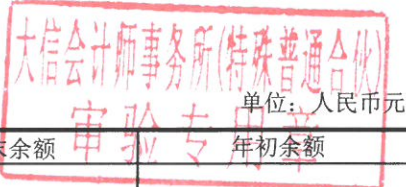 大信会计师事务所(特殊普通合伙)
审验专用章
单位：人民币元
末余额 年初余额